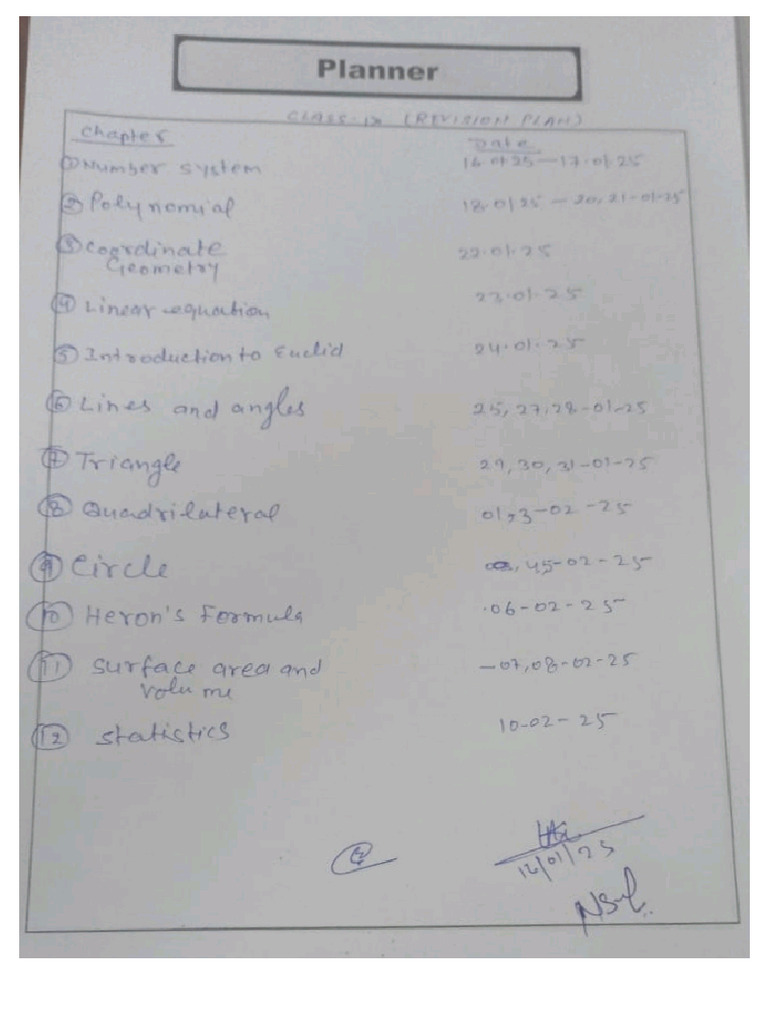 Planner
CLASS-IX (REVISION PLAN)
Chapters Date
① Number system 16.01.25-17.01.25
② Polynomial 18.01.25 - 20,21-01-25
③ Coordinate 22.01.25
Geometry
④ Linear equation 23.01.25
⑤ Introduction to Euclid 24.01.25
⑥ Lines and angles 25,27,28-01-25
⑦ Triangle 29,30,31-01-25
⑧ Quadrilateral 01,3-02-25
⑨ Circle 45-02-25
⑩ Heron's Formula 06-02-25
⑪ Surface area and -07,08-02-25
volume
⑫ Statistics 10-02-25